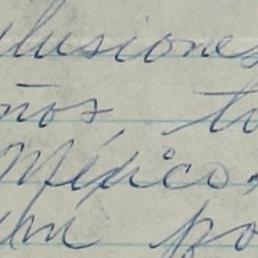 ilusiones
ños, tu
México.
un po